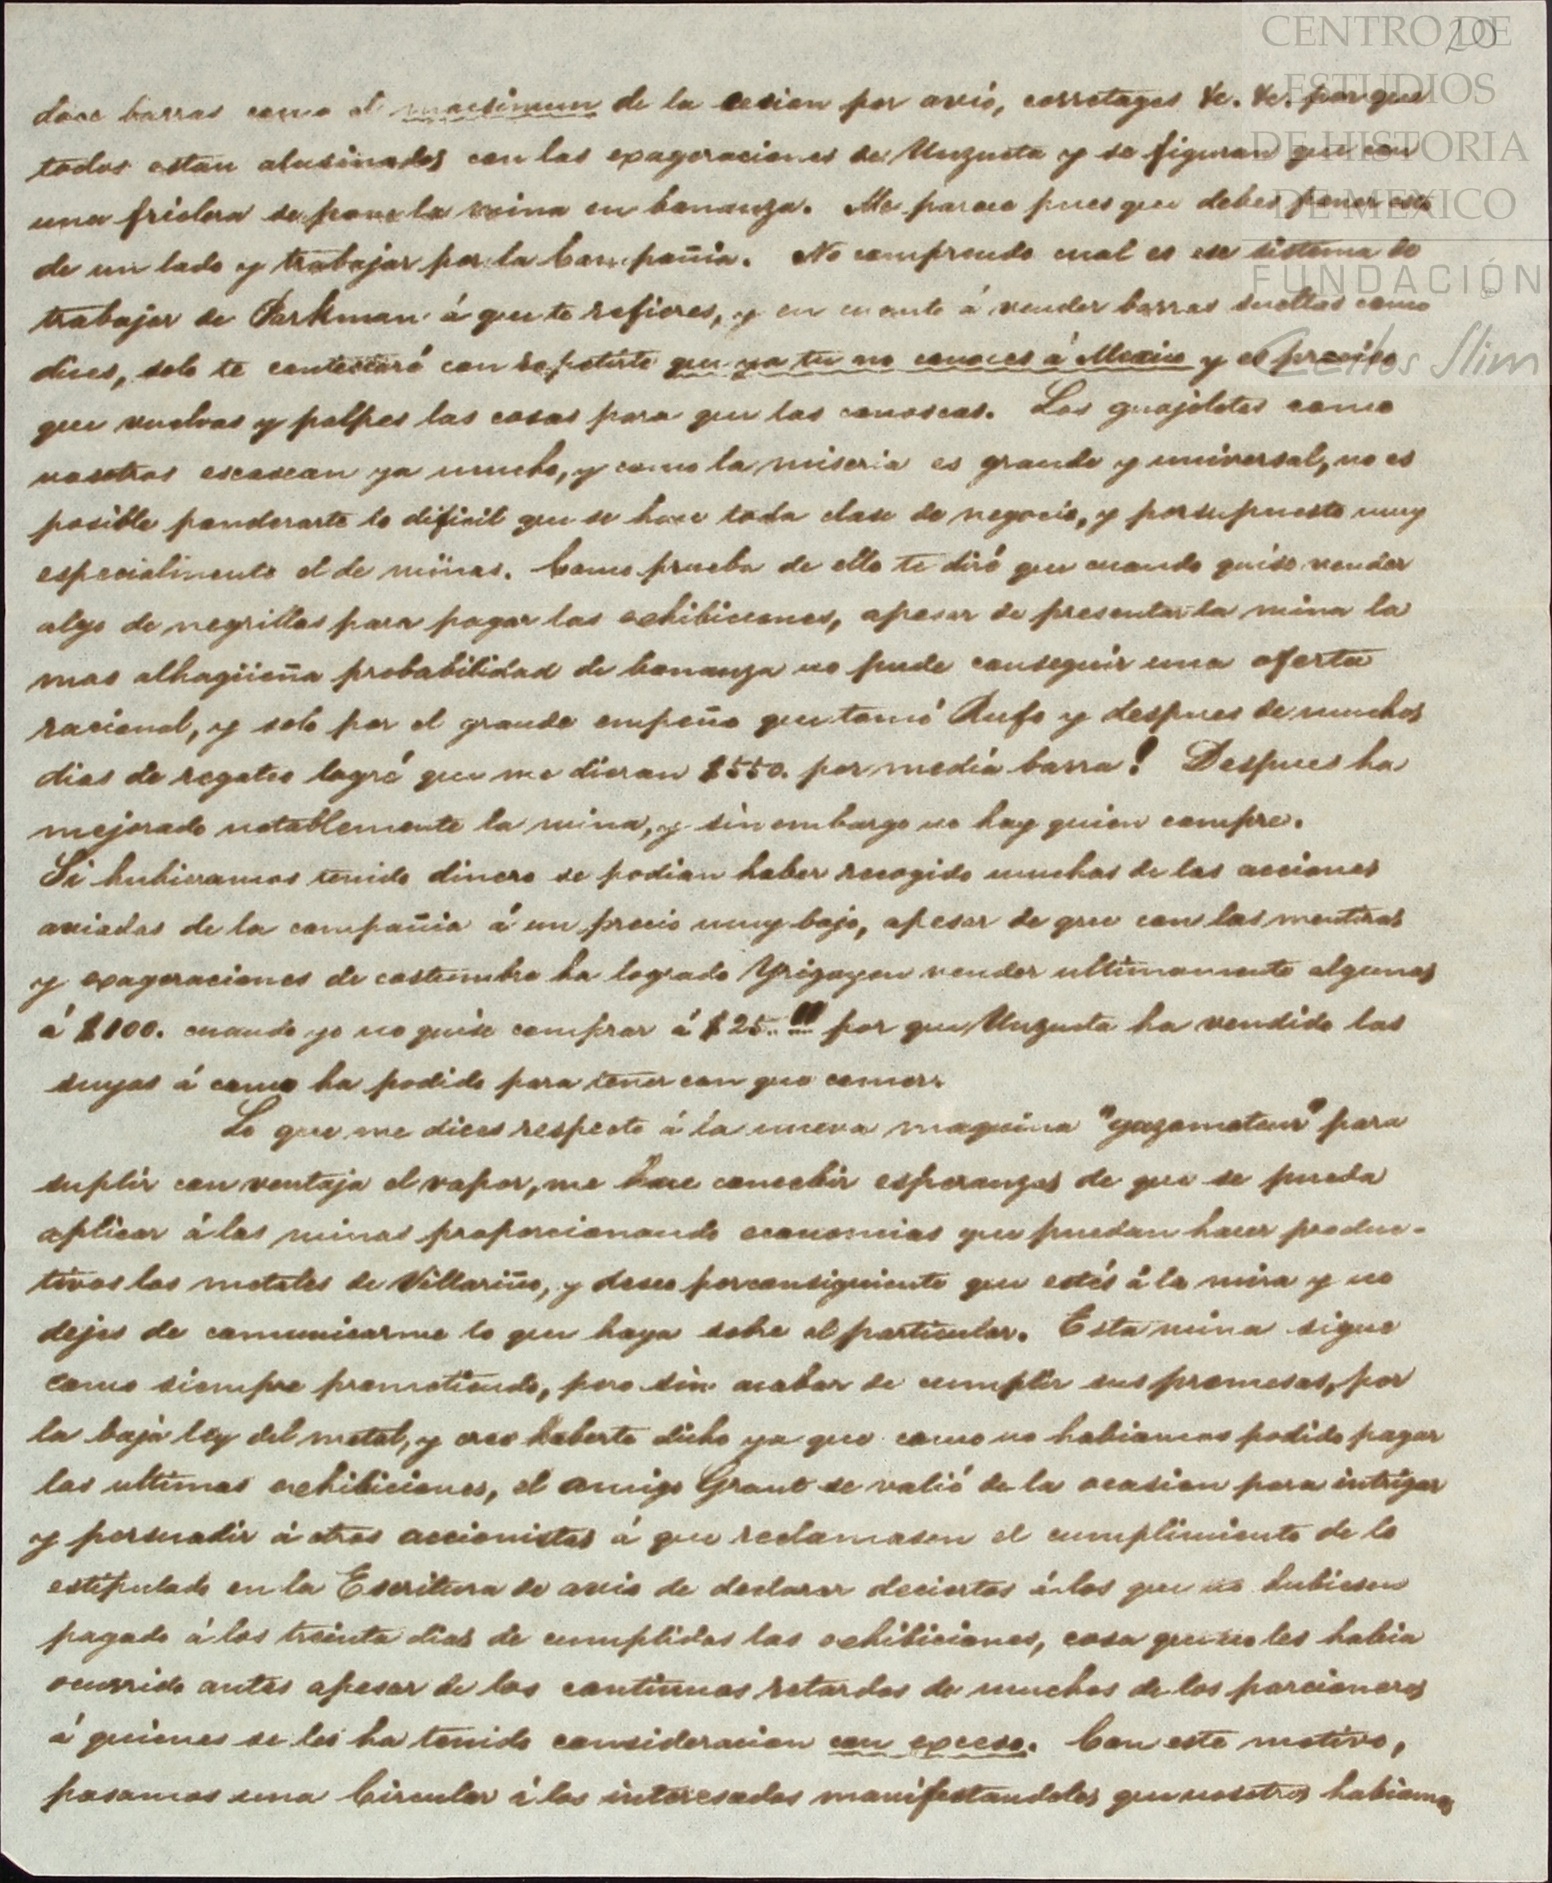 20
CENTRO DE
ESTUDIOS
DE HISTORIA
DE MEXICO
FUNDACIÓN
Carlos Slim
doce barras como el macsimun de la cesion por avío, corretages &c. &c. porque
todos estan alusinados con las exageraciones de Unzueta y se figuran que con
una friolera se pone la mina en bonanza. Me parece pues que debes poner esto
de un lado y trabajar por la Compañia. No comprendo cual es ese sistema de
trabajar de Parkman á que te refieres, y en cuanto á vender barras sueltas como
dices, solo te contestaré con repetirte que ya tu no conoces á Mexico y es preciso
que vuelvas y palpes las cosas para que las conoscas. Los guajolotes como
nosotros escasean ya mucho, y como la miseria es grande y universal, no es
posible ponderarte lo dificil que se hace toda clase de negocio, y porsupuesto muy
especialmente el de minas. Como prueba de ello te diré que cuando quise vender
algo de negrillas para pagar las echibiciones, apesar de presentar la mina la
mas alhagüeña probabilidad de bonanza no pude conseguir una oferta
racional, y solo por el grande empeño que tomó Rufo y despues de muchos
dias de regateo logré que me dieran $550. por media barra! Despues ha
mejorado notablemente la mina, y sin embargo no hay quien compre.
Si hubieramos tenido dinero se podian haber recogido muchas de las acciones
aviadas de la compañia á un precio muy bajo, apesar de que con las mentiras
y exageraciones de costumbre ha logrado Yrigoyen vender ultimamente algunas
á $100. cuando yo no quise comprar á $25..!!! por que Unzueta ha vendido las
suyas á como ha podido para tener con que comer.
Lo que me dices respecto á la nueva maquina "gazomoteur" para
suplir con ventaja el vapor, me hace concebir esperanzas de que se pueda
aplicar á las minas proporcionando economias que puedan hacer produc-
tivos los metales de Villariño, y deseo porconsiguiente que estés á la mira y no
dejes de comunicarme lo que haya sobre el particular. Esta mina sigue
como siempre prometiendo, pero sin acabar de cumplir sus promesas, por
la baja ley del metal, y creo haberte dicho ya que como no habiamos podido pagar
las ultimas echibiciones, el amigo Grant se valió de la ocasion para intrigar
y persuadir á otros accionistas á que reclamasen el cumplimiento de lo
estipulado en la Escritura de avio de declarar deciertos á los que no hubiesen
pagado á los treinta dias de cumplidas las echibiciones, cosa que no les habia
ocurrido antes apesar de los continuos retardos de muchos de los parcioneros
á quienes se les ha tenido consideracion con exceso. Con este motivo,
pasamos una Circular á los interesados manifestandoles que nosotros habiamos